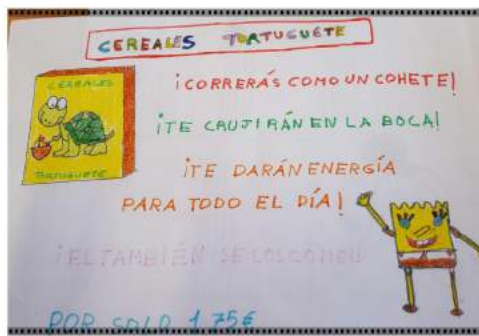 CEREALES TORTUGUETE
CEREALES
TORTUGUETE
¡CORRERÁS COMO UN COHETE!
¡TE CRUJIRÁN EN LA BOCA!
¡TE DARÁN ENERGÍA
PARA TODO EL DÍA!
¡EL TAMBIÉN SE LOS COMÍO
POR SOLO 1.75€